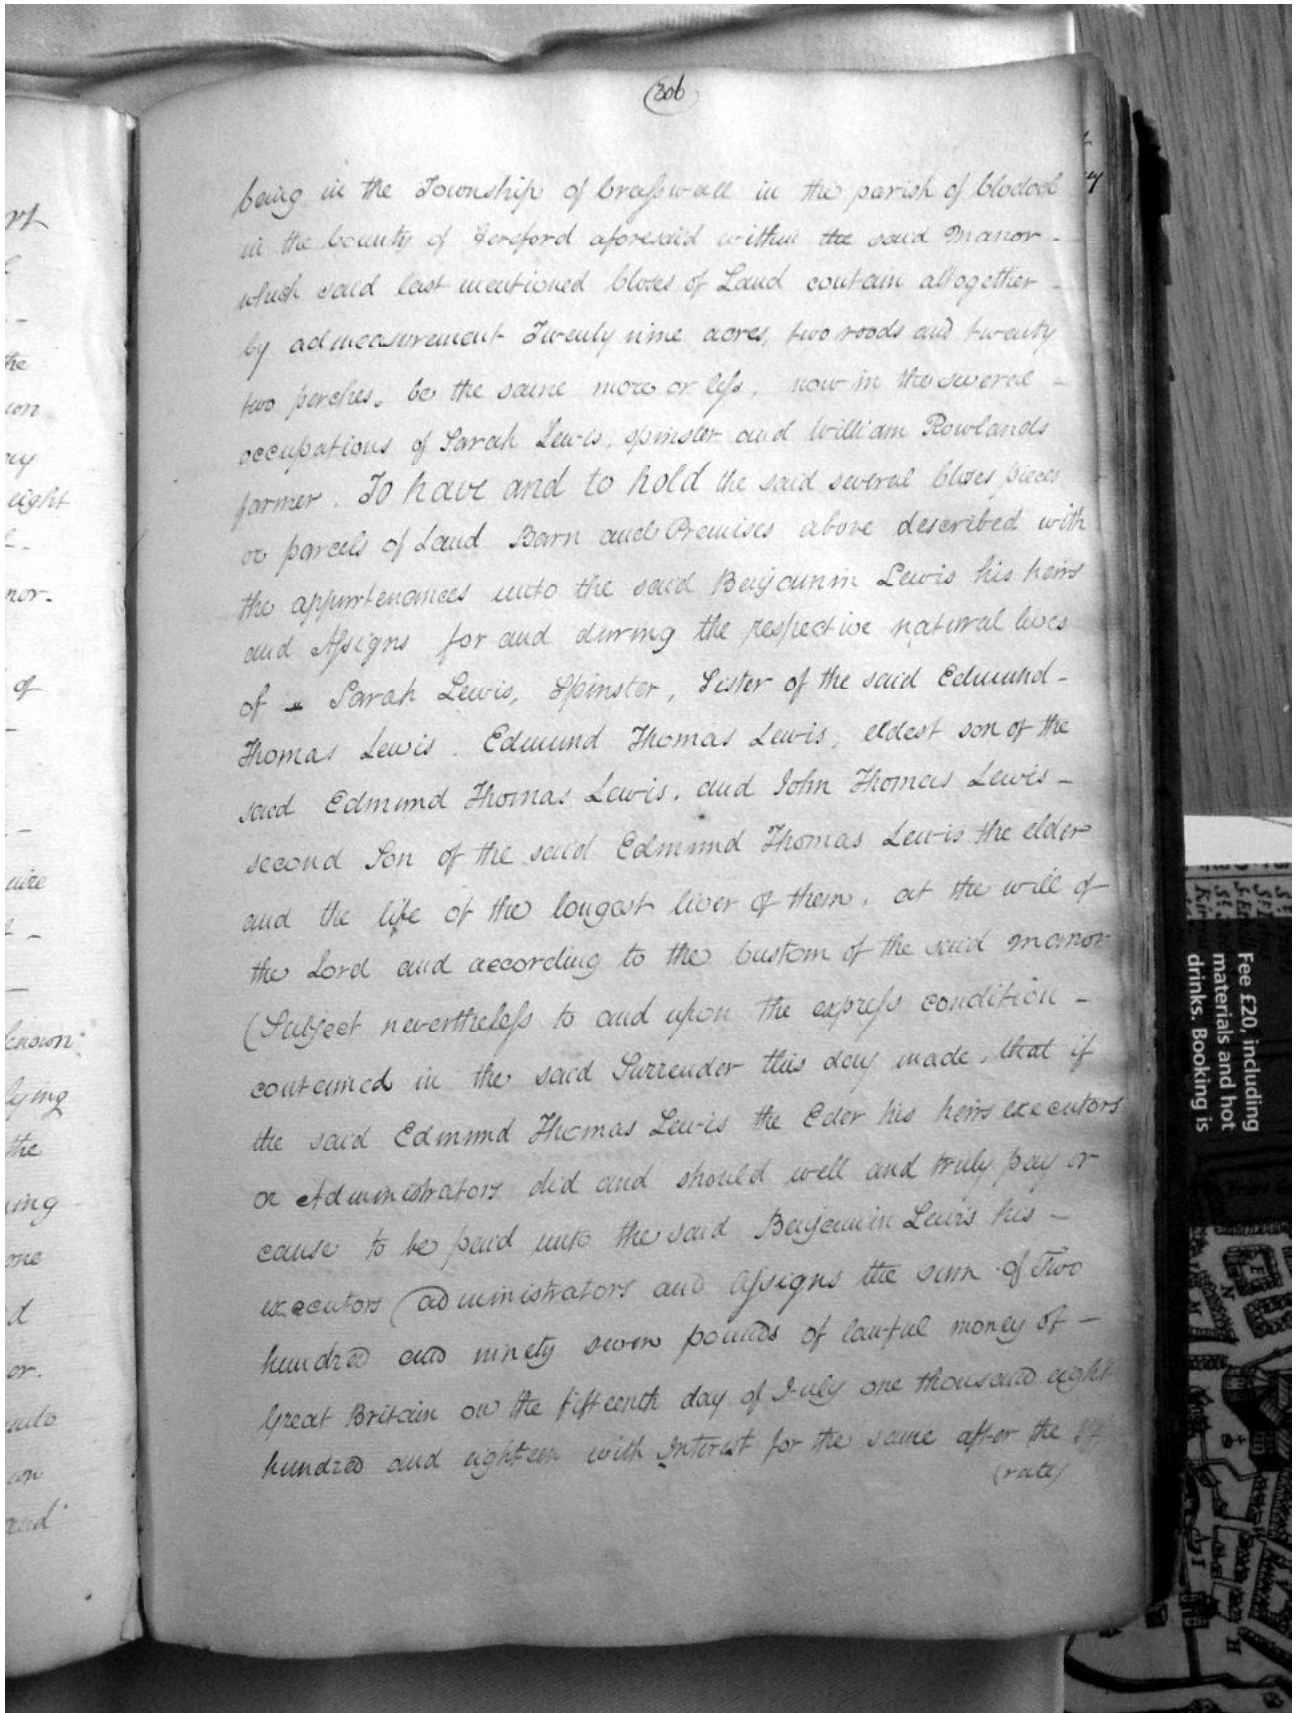 (306)
being in the Township of Crasswall in the parish of Clodock
in the County of Hereford aforesaid within the said Manor -
which said last mentioned Closes of Land contain altogether -
by admeasurement Twenty nine acres, two roods and twenty
two perches, be the same more or less, now in the several -
occupations of Sarah Lewis, spinster and William Rowlands
farmer. To have and to hold the said several Closes pieces
or parcels of Land Barn and Premises above described with
the appurtenances unto the said Benjamin Lewis his heirs
and Assigns for and during the respective natural lives
of Sarah Lewis, Spinster, Sister of the said Edmund -
Thomas Lewis. Edmund Thomas Lewis, eldest son of the
said Edmund Thomas Lewis, and John Thomas Lewis -
second Son of the said Edmund Thomas Lewis the elder
and the life of the longest liver of them, at the will of
the Lord and according to the Custom of the said manor
(Subject nevertheless to and upon the express condition -
contained in the said Surrender this day made, that if
the said Edmund Thomas Lewis the Eder his heirs executors
or Administrators did and should well and truly pay or
cause to be paid unto the said Benjamin Lewis his -
executors administrators and Assigns the sum of Two
hundred and ninety seven pounds of lawful money of -
Great Britain on the fifteenth day of July one thousand eight
hundred and eighteen with Interest for the same after the
(rate)
the
ight
nor.
of
lying
the
Fee £20, including
materials and hot
drinks. Booking is